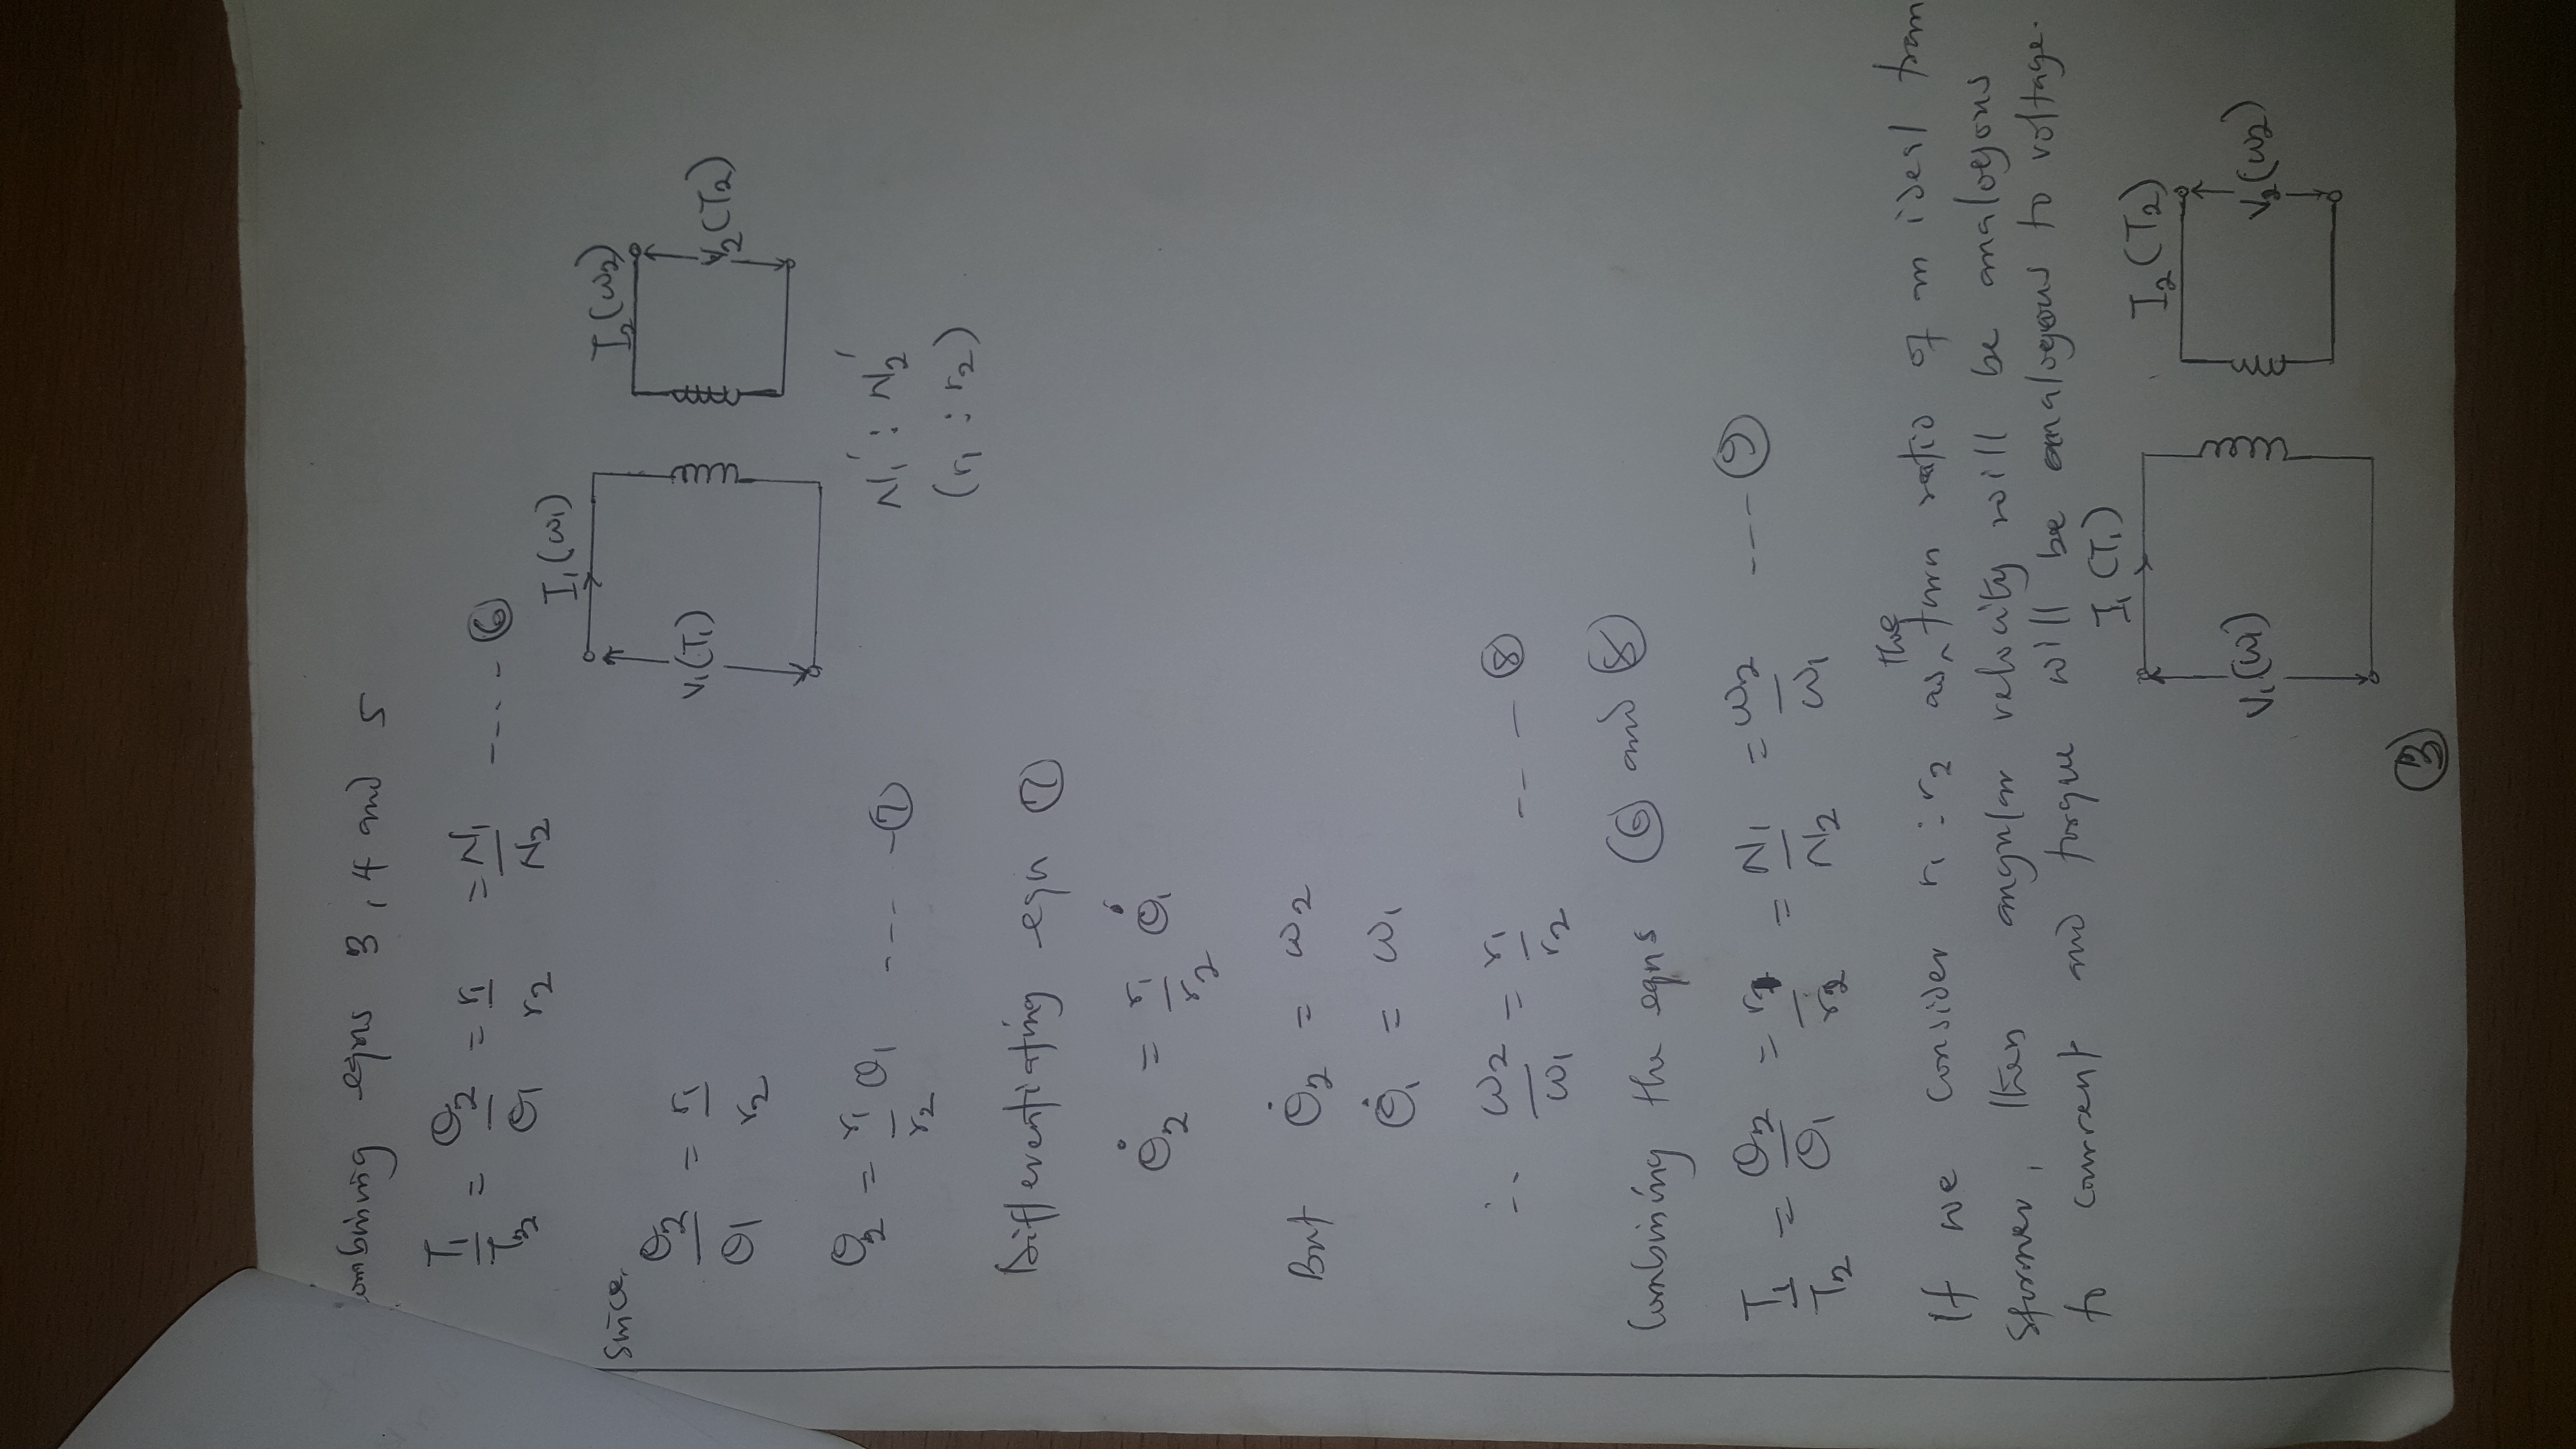 ombining eqns 3, 4 and 5
T₁/T₂ = θ₂/θ₁ = r₁/r₂ = N₁/N₂ ---- ⑥
I₁(ω₁)
I₂(ω₂)
V₁(T₁)
V₂(T₂)
N₁' : N₂'
(r₁ : r₂)
Since,
θ₂/θ₁ = r₁/r₂
θ₂ = r₁/r₂ θ₁ ---- ⑦
Differentiating eqn ⑦
θ̇₂ = r₁/r₂ θ̇₁
But θ̇₂ = ω₂
θ̇₁ = ω₁
∴ ω₂/ω₁ = r₁/r₂ --- ⑧
Combining the eqns ⑥ and ⑧
T₁/T₂ = θ₂/θ₁ = r₁/r₂ = N₁/N₂ = ω₂/ω₁ --- ⑨
If we consider r₁ : r₂ as the turn ratio of an ideal tran
sformer, then angular velocity will be analogous
to current and torque will be analogous to voltage.
I₁(T₁)
I₂(T₂)
V₁(ω₁)
V₂(ω₂)
③